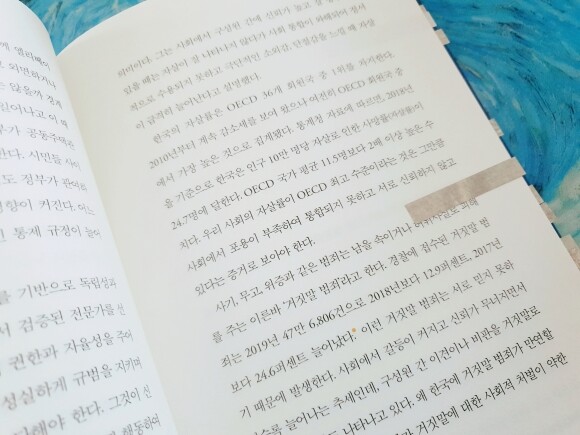 게 엘리베이
고 외면하거나
은 않을까 경계
길어나고 이 때
부가 공동주택관
한다. 시민들 사이
도 정부가 관여하
병향이 커진다. 어느
긴 통제 규정이 늘어
를 기반으로 독립성과
서 검증된 전문가를 선
권한과 자율성을 주어
성실하게 규범을 지키며
단해야 한다. 그것이 신
행동하여
의미이다. 그는 사회에서 구성원 간에 신뢰가 높고 잘
있을 때는 자살이 잘 나타나지 않다가 사회 통합이 와해되어 정서
적으로 수용되지 못하고 극단적인 소외감, 단절감을 느낄 때 자살
이 급격히 늘어난다고 설명했다.
한국의 자살률은 OECD 36개 회원국 중 1위를 차지한다.
2010년부터 계속 감소세를 보여 왔으나 여전히 OECD 회원국 중
에서 가장 높은 것으로 집계됐다. 통계청 자료에 따르면, 2018년
을 기준으로 한국은 인구 10만 명당 자살로 인한 사망률(자살률)이
24.7명에 달한다. OECD 국가 평균 11.5명보다 2배 이상 높은 수
치다. 우리 사회의 자살률이 OECD 최고 수준이라는 것은 그만큼
사회에서 포용이 부족하여 통합되지 못하고 서로 신뢰하지 않고
있다는 증거로 보아야 한다.
사기, 무고, 위증과 같은 범죄는 남을 속이거나 허위사실로 피해
를 주는 이른바 ‘거짓말 범죄’라고 한다. 경찰에 접수된 거짓말 범
죄는 2019년 47만 6,806건으로 2018년보다 12.9퍼센트, 2017년
보다 24.6퍼센트 늘어났다. 이런 거짓말 범죄는 서로 믿지 못하
기 때문에 발생한다. 사회에서 갈등이 커지고 신뢰가 무너지면서
늘어나는 추세인데, 구성원 간 이견이나 비판을 거짓말로
나타나고 있다. 왜 한국에 거짓말 범죄가 만연할
거짓말에 대한 사회적 처벌이 약한